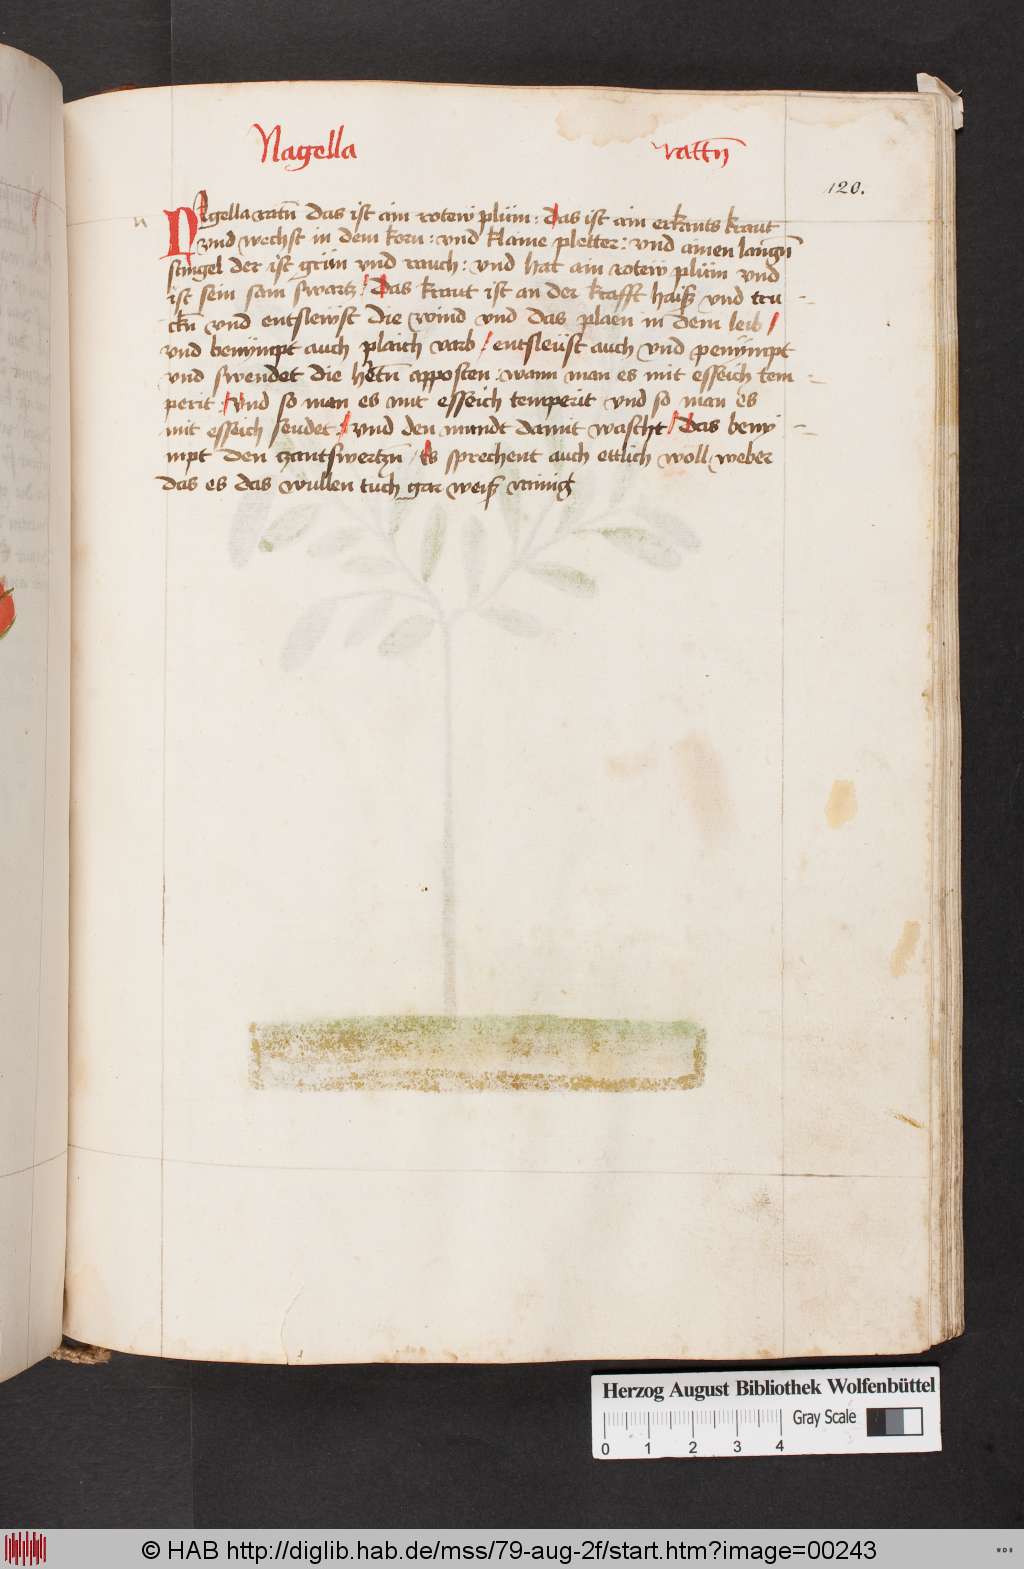 Nagella rattn̄
120.
n
Nagella ratn̄ das ist ain rotew plüm : das ist ain erkants kraut
vnd wechst in dem korn : vnd klaine pletter : vnd ainen langn̄
stingel der ist grün vnd rauch : vnd hat ain rotew plüm vnd
ist sein sam swartz / Das kraut ist an der krafft haiß vnd tru -
ckn̄ vnd entslewst die wind vnd das plaen in dem leib /
vnd benympt auch plaich varb / entsleüst auch vnd penympt
vnd swendet die hertn̄ apposten : wann man es mit esseich tem -
perit : / vnd so man es mit esseich temperit vnd so man es
mit esseich seudet / vnd den mundt damit wascht / Das beny -
mpt den zantswertzn̄ / Es sprechent auch ettlich woll weber
das es das wullen tuch gar weiß rainig
Herzog August Bibliothek Wolfenbüttel
0 1 2 3 4 Gray Scale
© HAB http://diglib.hab.de/mss/79-aug-2f/start.htm?image=00243